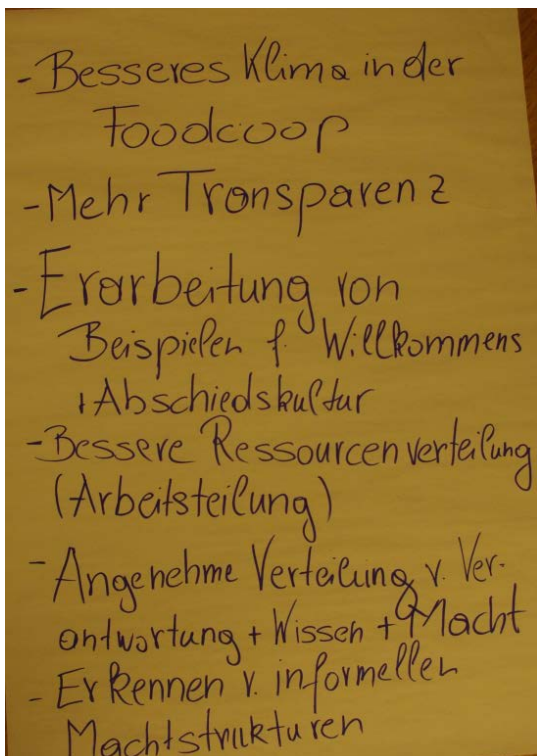 - Besseres Klima in der
Foodcoop
- Mehr Transparenz
- Erarbeitung von
Beispielen f. Willkommens
+ Abschiedskultur
- Bessere Ressourcenverteilung
(Arbeitsteilung)
- Angenehme Verteilung v. Ver-
antwortung + Wissen + Macht
- Erkennen v. informellen
Machtstrukturen